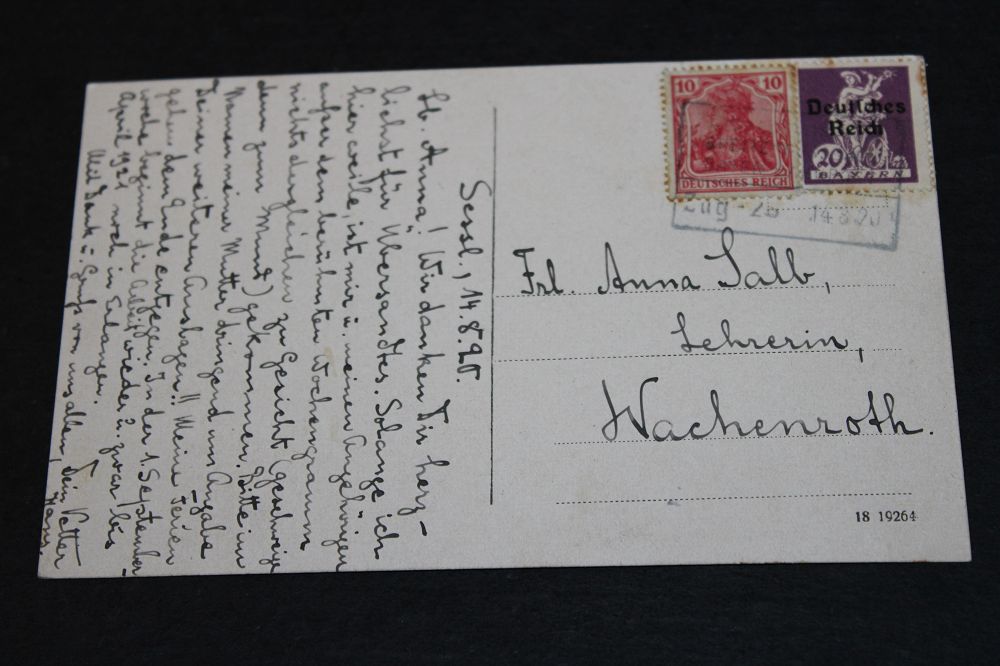 Sessl., 14.8.20.
Lb. Anna! Wir danken Dir herz-
lichst für Übersandtes. Solange ich
hier weile, ist mir u. meinen Angehörigen
außer dem berühmten Wochengramm
nichts dergleichen zu Gericht (geschweige
denn zum Mund) gekommen. Bitte im
Namen meiner Mutter dringend um Angabe
Deiner weiteren Auslagen!! Meine Ferien
gehen dem Ende entgegen. In der 1. September-
woche beginnt die Arbeit wieder u. zwar bis
April 1921 noch in Erlangen.
Mit Dank u. Gruß von uns allen, Dein Vetter
Hans.
10 10
DEUTSCHES REICH
Deutsches
Reich
20
BAYERN
Zug 26 14 8 20
Frl. Anna Salb,
Lehrerin,
Wachenroth.
18 19264